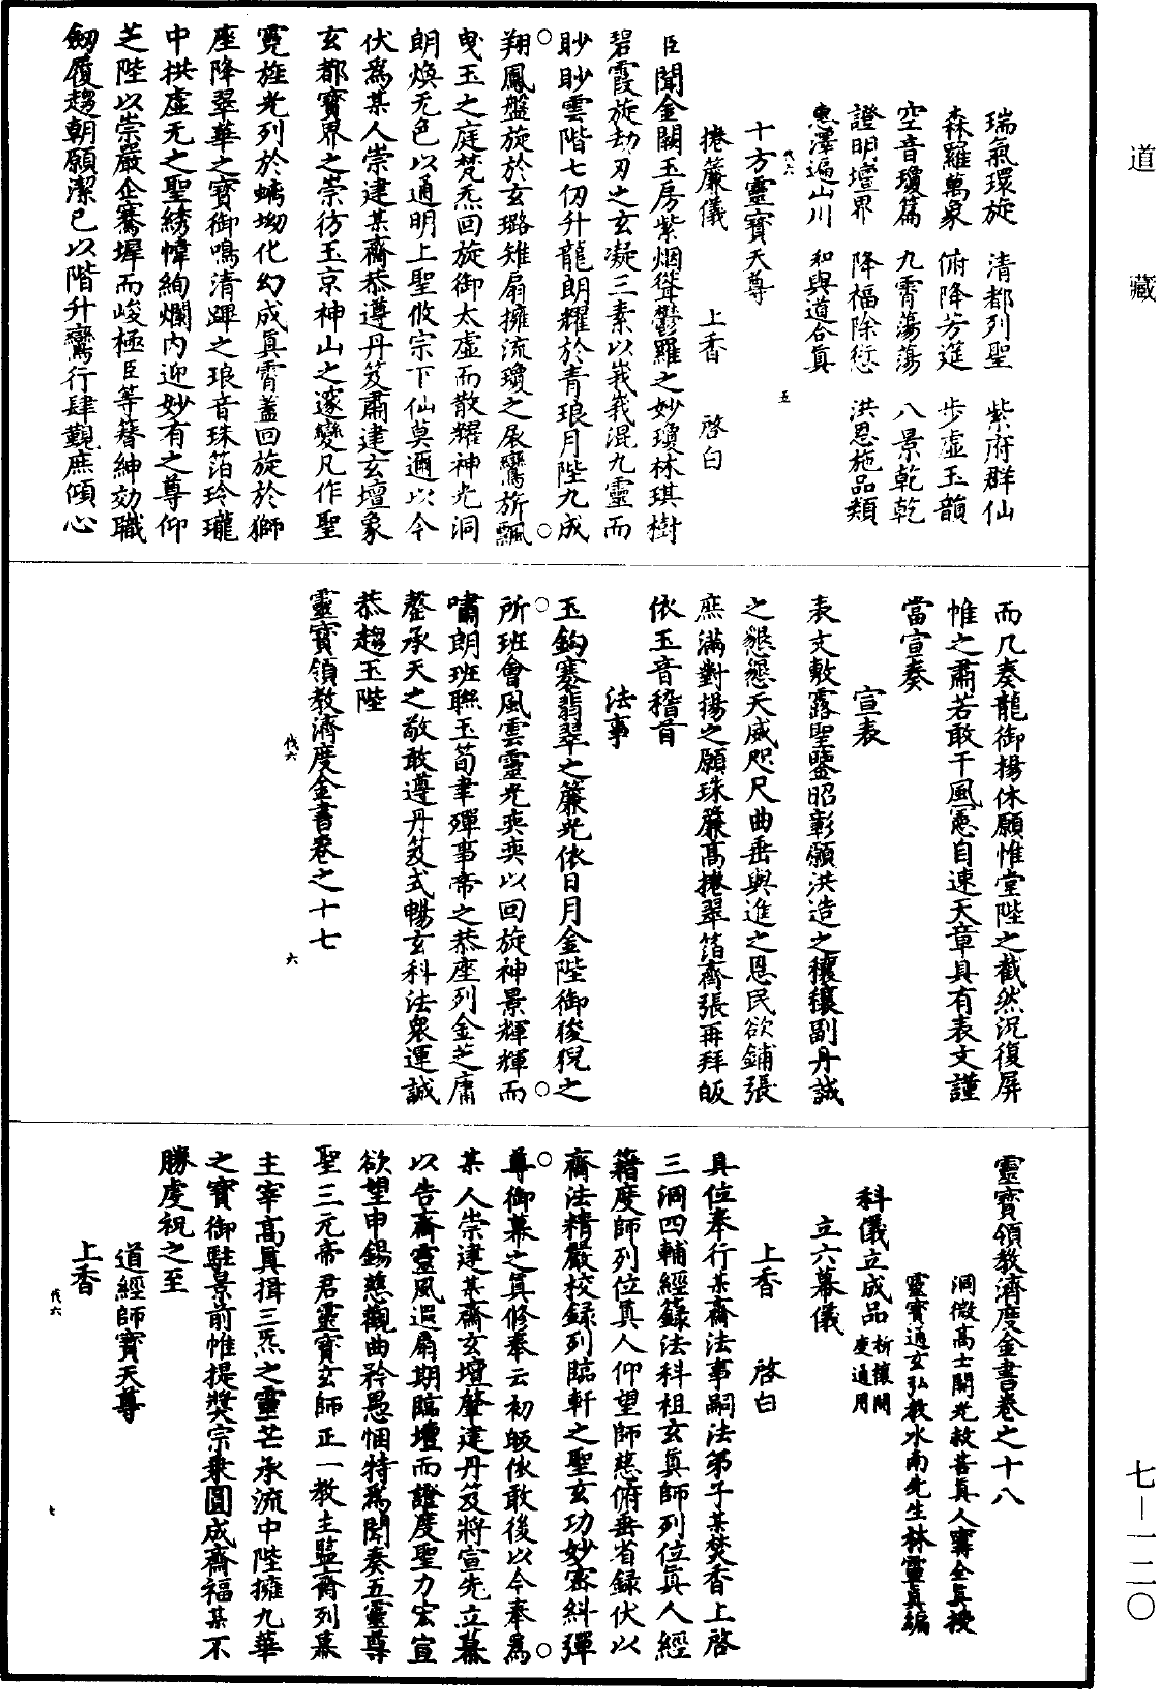 道藏
七—一二〇
瑞氣環旋　清都列聖　紫府群仙
森羅萬象　俯降芳筵　步虛玉韻
空音瓊篇　九霄蕩蕩　八景乾乾
證明壇界　降福除愆　洪恩施品類
惠澤遍山川　和與道合眞
十方靈寶天尊
捲簾儀　上香　啓白
臣聞金闕玉房紫烟聳鬱羅之妙瓊林琪樹
碧霞旋劫刃之玄凝三素以峩峩混九靈而
眇眇雲階七仞升龍朗耀於青琅月陛九成
翔鳳盤旋於玄璐雉扇擁流瓊之扆鸞旂飄
曳玉之庭梵炁回旋御太虛而散耀神光洞
朗煥无色以通明上聖攸宗下仙莫邇以今
伏爲某人崇建某齋恭遵丹笈肅建玄壇象
玄都寶界之崇彷玉京神山之邃變凡作聖
霓旌光列於螭坳化幻成眞霄蓋回旋於獅
座降翠華之寶御鳴清蹕之琅音珠箔玲瓏
中拱虛无之聖綉幃絢爛內迎妙有之尊仰
芝陛以崇嚴企騫墀而峻極臣等簪紳効職
劒履趨朝願潔已以階升鸞行肆覲庶傾心
而几奏龍御揚休願惟堂陛之截然況復屏
帷之肅若敢干風憲自速天章具有表文謹
當宣奏
宣表
表文敷露聖鑒昭彰願洪造之穰穰副丹誠
之懇懇天威咫尺曲垂與進之恩民欲鋪張
庶滿對揚之願珠簾高捲翠箔齊張再拜皈
依玉音稽首
法事
玉鈎褰翡翠之簾光依日月金陛御狻猊之
所班會風雲靈光奕奕以回旋神景輝輝而
嘯朗班聯玉荀聿殫事帝之恭座列金芝庸
罄承天之敬敢遵丹笈式暢玄科法衆運誠
恭趨玉陛
靈寶領教濟度金書卷之十七
伐六
六
靈寶領教濟度金書卷之十八
洞微高士開光救苦眞人寗全眞授
靈寶通玄弘教水南先生林靈眞編
科儀立成品祈禳開度通用
立六幕儀
上香　啓白
具位奉行某齋法事嗣法弟子某焚香上啓
三洞四輔經籙法科祖玄眞師列位眞人經
籍度師列位眞人仰望師慈俯垂省錄伏以
齋法精嚴校錄列臨軒之聖玄功妙密糾彈
尊御幕之眞修奉云初皈依敢後以今奉爲
某人崇建某齋玄壇肇建丹笈將宣先立幕
以告齋靈風遐扇期臨壇而證度聖力宏宣
欲望申錫慈觀曲矜愚悃特爲聞奏五靈尊
聖三元帝君靈寶玄師正一教主監齋列幕
主宰高眞揖三炁之靈芒承流中陛擁九華
之寶御駐景前帷提獎宗乘圓成齋福某不
勝虔祝之至
道經師寶天尊
上香
伐六